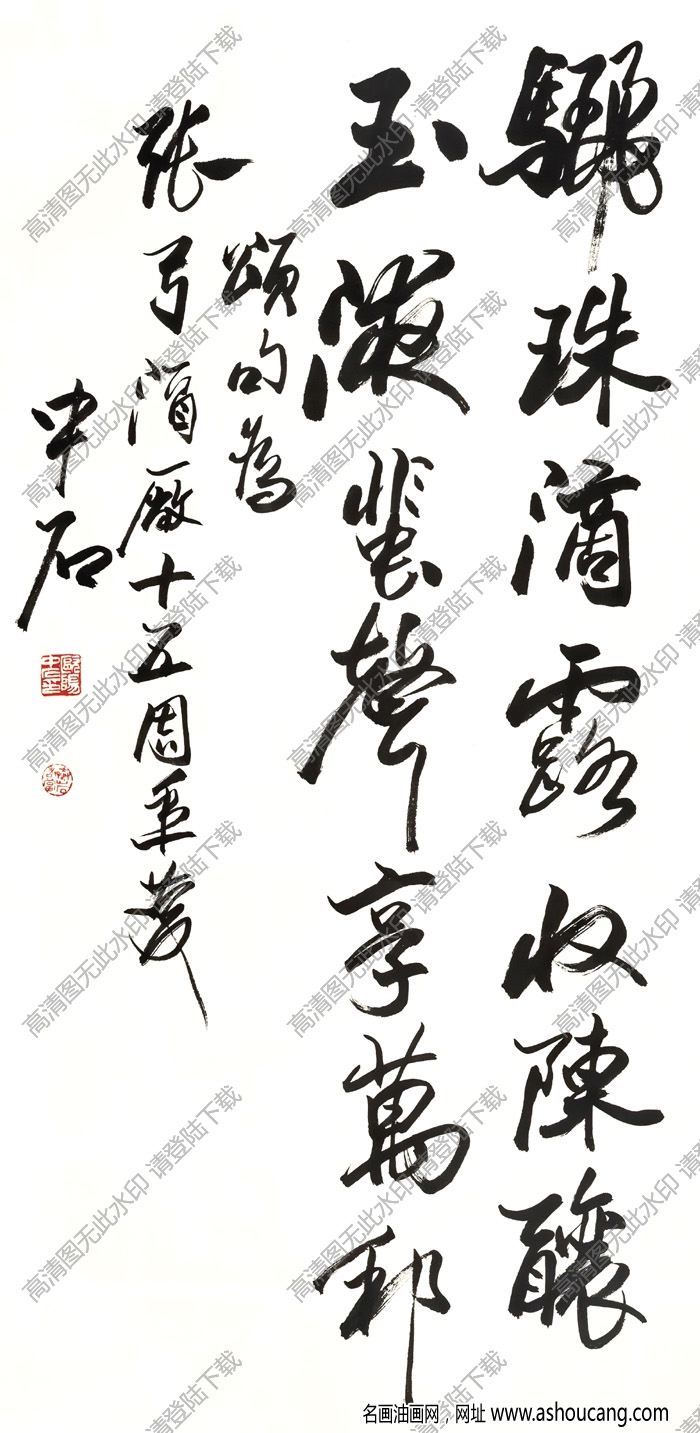 驪珠滴露收陳釀
玉液蜚聲享萬邦
頌句為
張弓酒廠十五周年慶
中石
歐陽中石
高清图无此水印 请登陆下载
名画油画网，网址 www.ashoucang.com